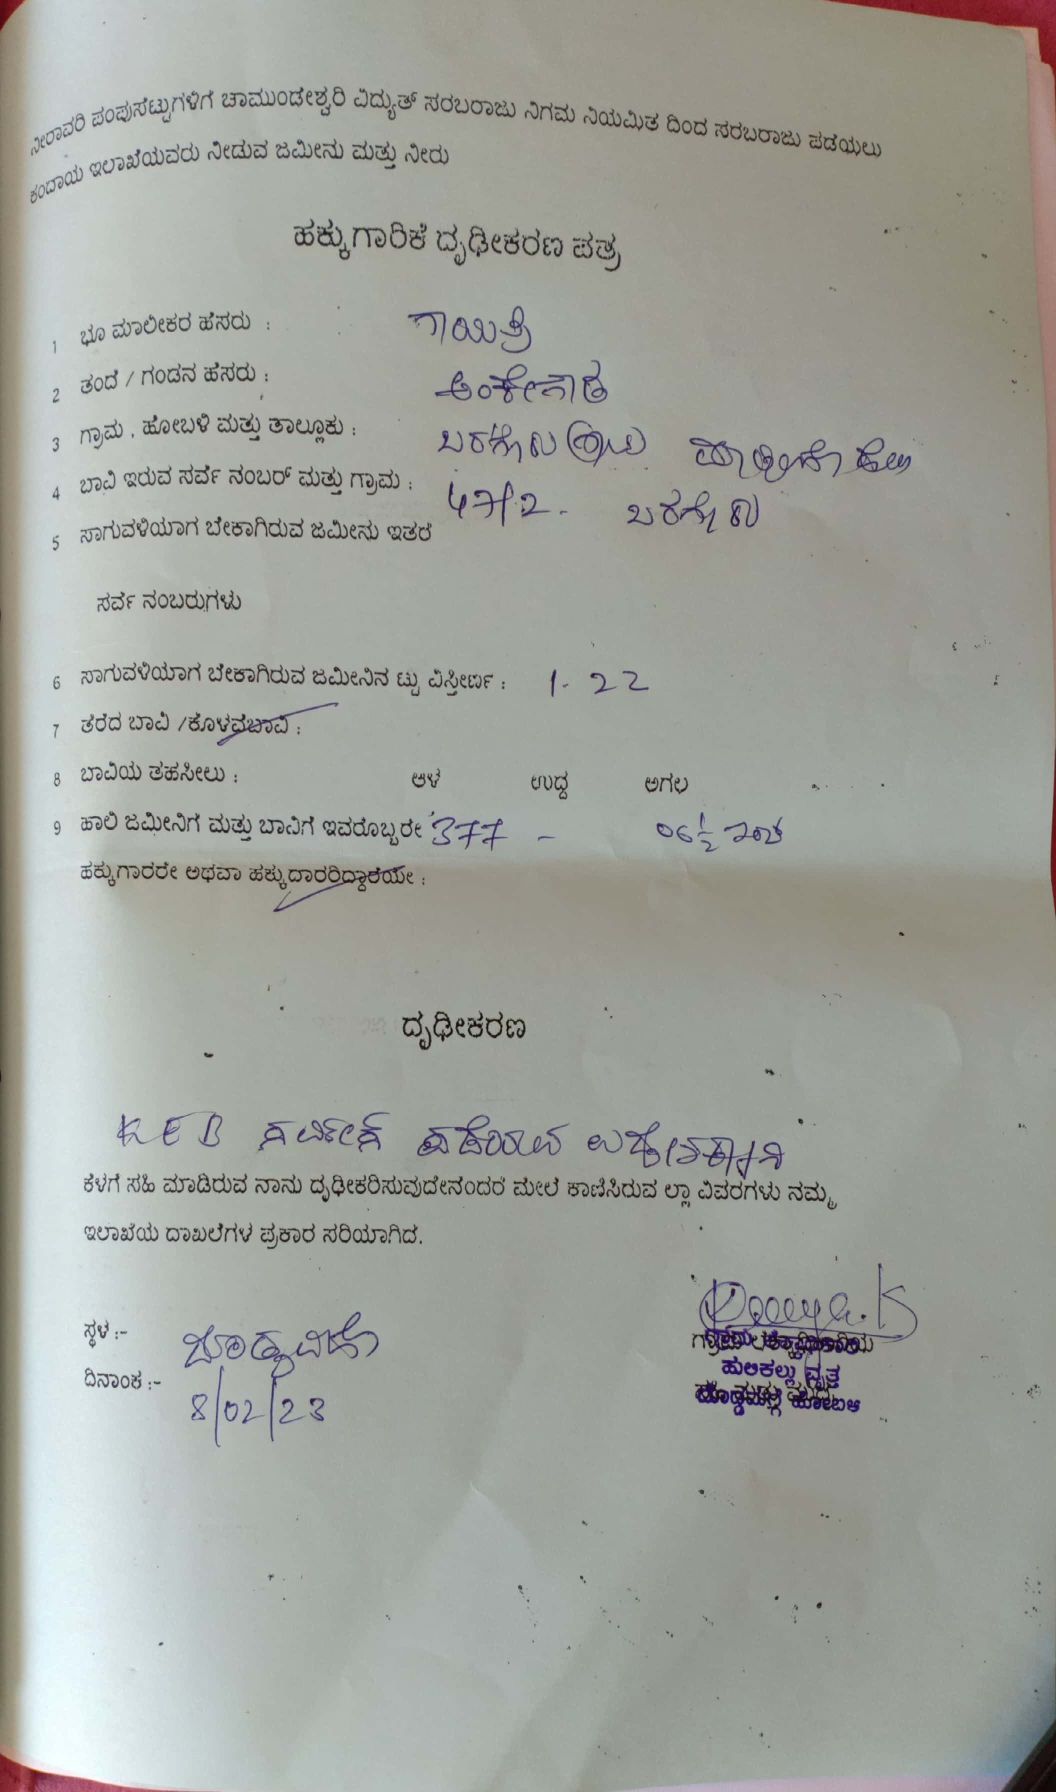 ನೀರಾವರಿ ಪಂಪುಸೆಟ್ಟುಗಳಿಗೆ ಚಾಮುಂಡೇಶ್ವರಿ ವಿದ್ಯುತ್ ಸರಬರಾಜು ನಿಗಮ ನಿಯಮಿತ ದಿಂದ ಸರಬರಾಜು ಪಡೆಯಲು
ಕಂದಾಯ ಇಲಾಖೆಯವರು ನೀಡುವ ಜಮೀನು ಮತ್ತು ನೀರು
ಹಕ್ಕುಗಾರಿಕೆ ದೃಢೀಕರಣ ಪತ್ರ
1 ಭೂ ಮಾಲೀಕರ ಹೆಸರು : ಗಾಯಿತ್ರಿ
2 ತಂದೆ / ಗಂಡನ ಹೆಸರು : ಅಂಕೇಗೌಡ
3 ಗ್ರಾಮ . ಹೋಬಳಿ ಮತ್ತು ತಾಲ್ಲೂಕು :
4 ಬಾವಿ ಇರುವ ಸರ್ವೆ ನಂಬರ್ ಮತ್ತು ಗ್ರಾಮ : 47/2.
5 ಸಾಗುವಳಿಯಾಗ ಬೇಕಾಗಿರುವ ಜಮೀನು ಇತರೆ
ಸರ್ವೆ ನಂಬರುಗಳು
6 ಸಾಗುವಳಿಯಾಗ ಬೇಕಾಗಿರುವ ಜಮೀನಿನ ಟ್ಟು ವಿಸ್ತೀರ್ಣ : 1-22
7 ತೆರೆದ ಬಾವಿ /ಕೊಳವೆಬಾವಿ :
8 ಬಾವಿಯ ತಹಸೀಲು : ಆಳ ಉದ್ದ ಅಗಲ
9 ಹಾಲಿ ಜಮೀನಿಗೆ ಮತ್ತು ಬಾವಿಗೆ ಇವರೊಬ್ಬರೇ 377 - 06 1/2 ಇಂಚು
ಹಕ್ಕುಗಾರರೇ ಅಥವಾ ಹಕ್ಕುದಾರರಿದ್ದಾರೆಯೇ :
ದೃಢೀಕರಣ
KEB ಸರ್ವೀಸ್ ಪಡೆಯುವ ಉದ್ದೇಶಕ್ಕಾಗಿ
ಕೆಳಗೆ ಸಹಿ ಮಾಡಿರುವ ನಾನು ದೃಢೀಕರಿಸುವುದೇನಂದರೆ ಮೇಲೆ ಕಾಣಿಸಿರುವ ಲ್ಲಾ ವಿವರಗಳು ನಮ್ಮ
ಇಲಾಖೆಯ ದಾಖಲೆಗಳ ಪ್ರಕಾರ ಸರಿಯಾಗಿದೆ.
ಸ್ಥಳ :-
ದಿನಾಂಕ :- 8/02/23
ಹುಲಿಕಲ್ಲು ವೃತ್ತ
ದೊಡ್ಡಮಗ್ಗೆ ಹೋಬಳಿ